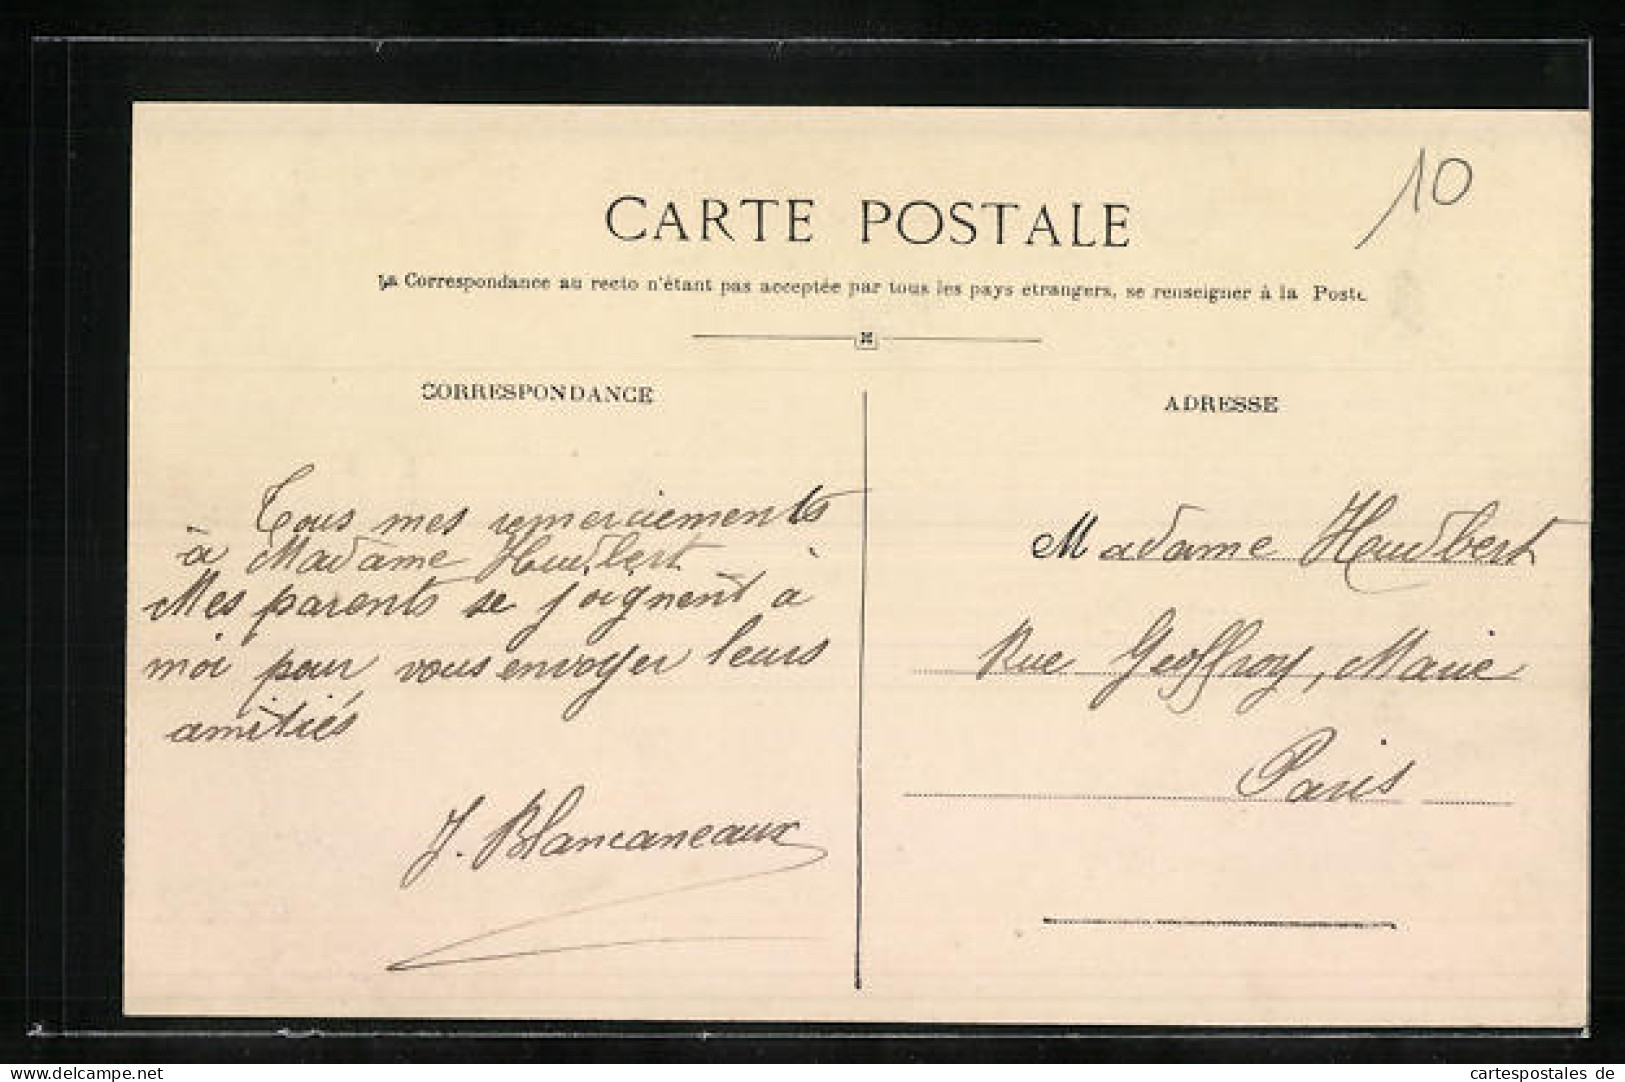 10
CARTE POSTALE
La Correspondance au recto n'étant pas acceptée par tous les pays etrangers, se renseigner à la Poste
CORRESPONDANCE
Tous mes remerciements
à Madame Heudbert
Mes parents se joignent à
moi pour vous envoyer leurs
amitiés
J. Blancaneaux
ADRESSE
Madame Heudbert
Rue Geoffroy, Marie
Paris
www.delcampe.net
cartespostales de